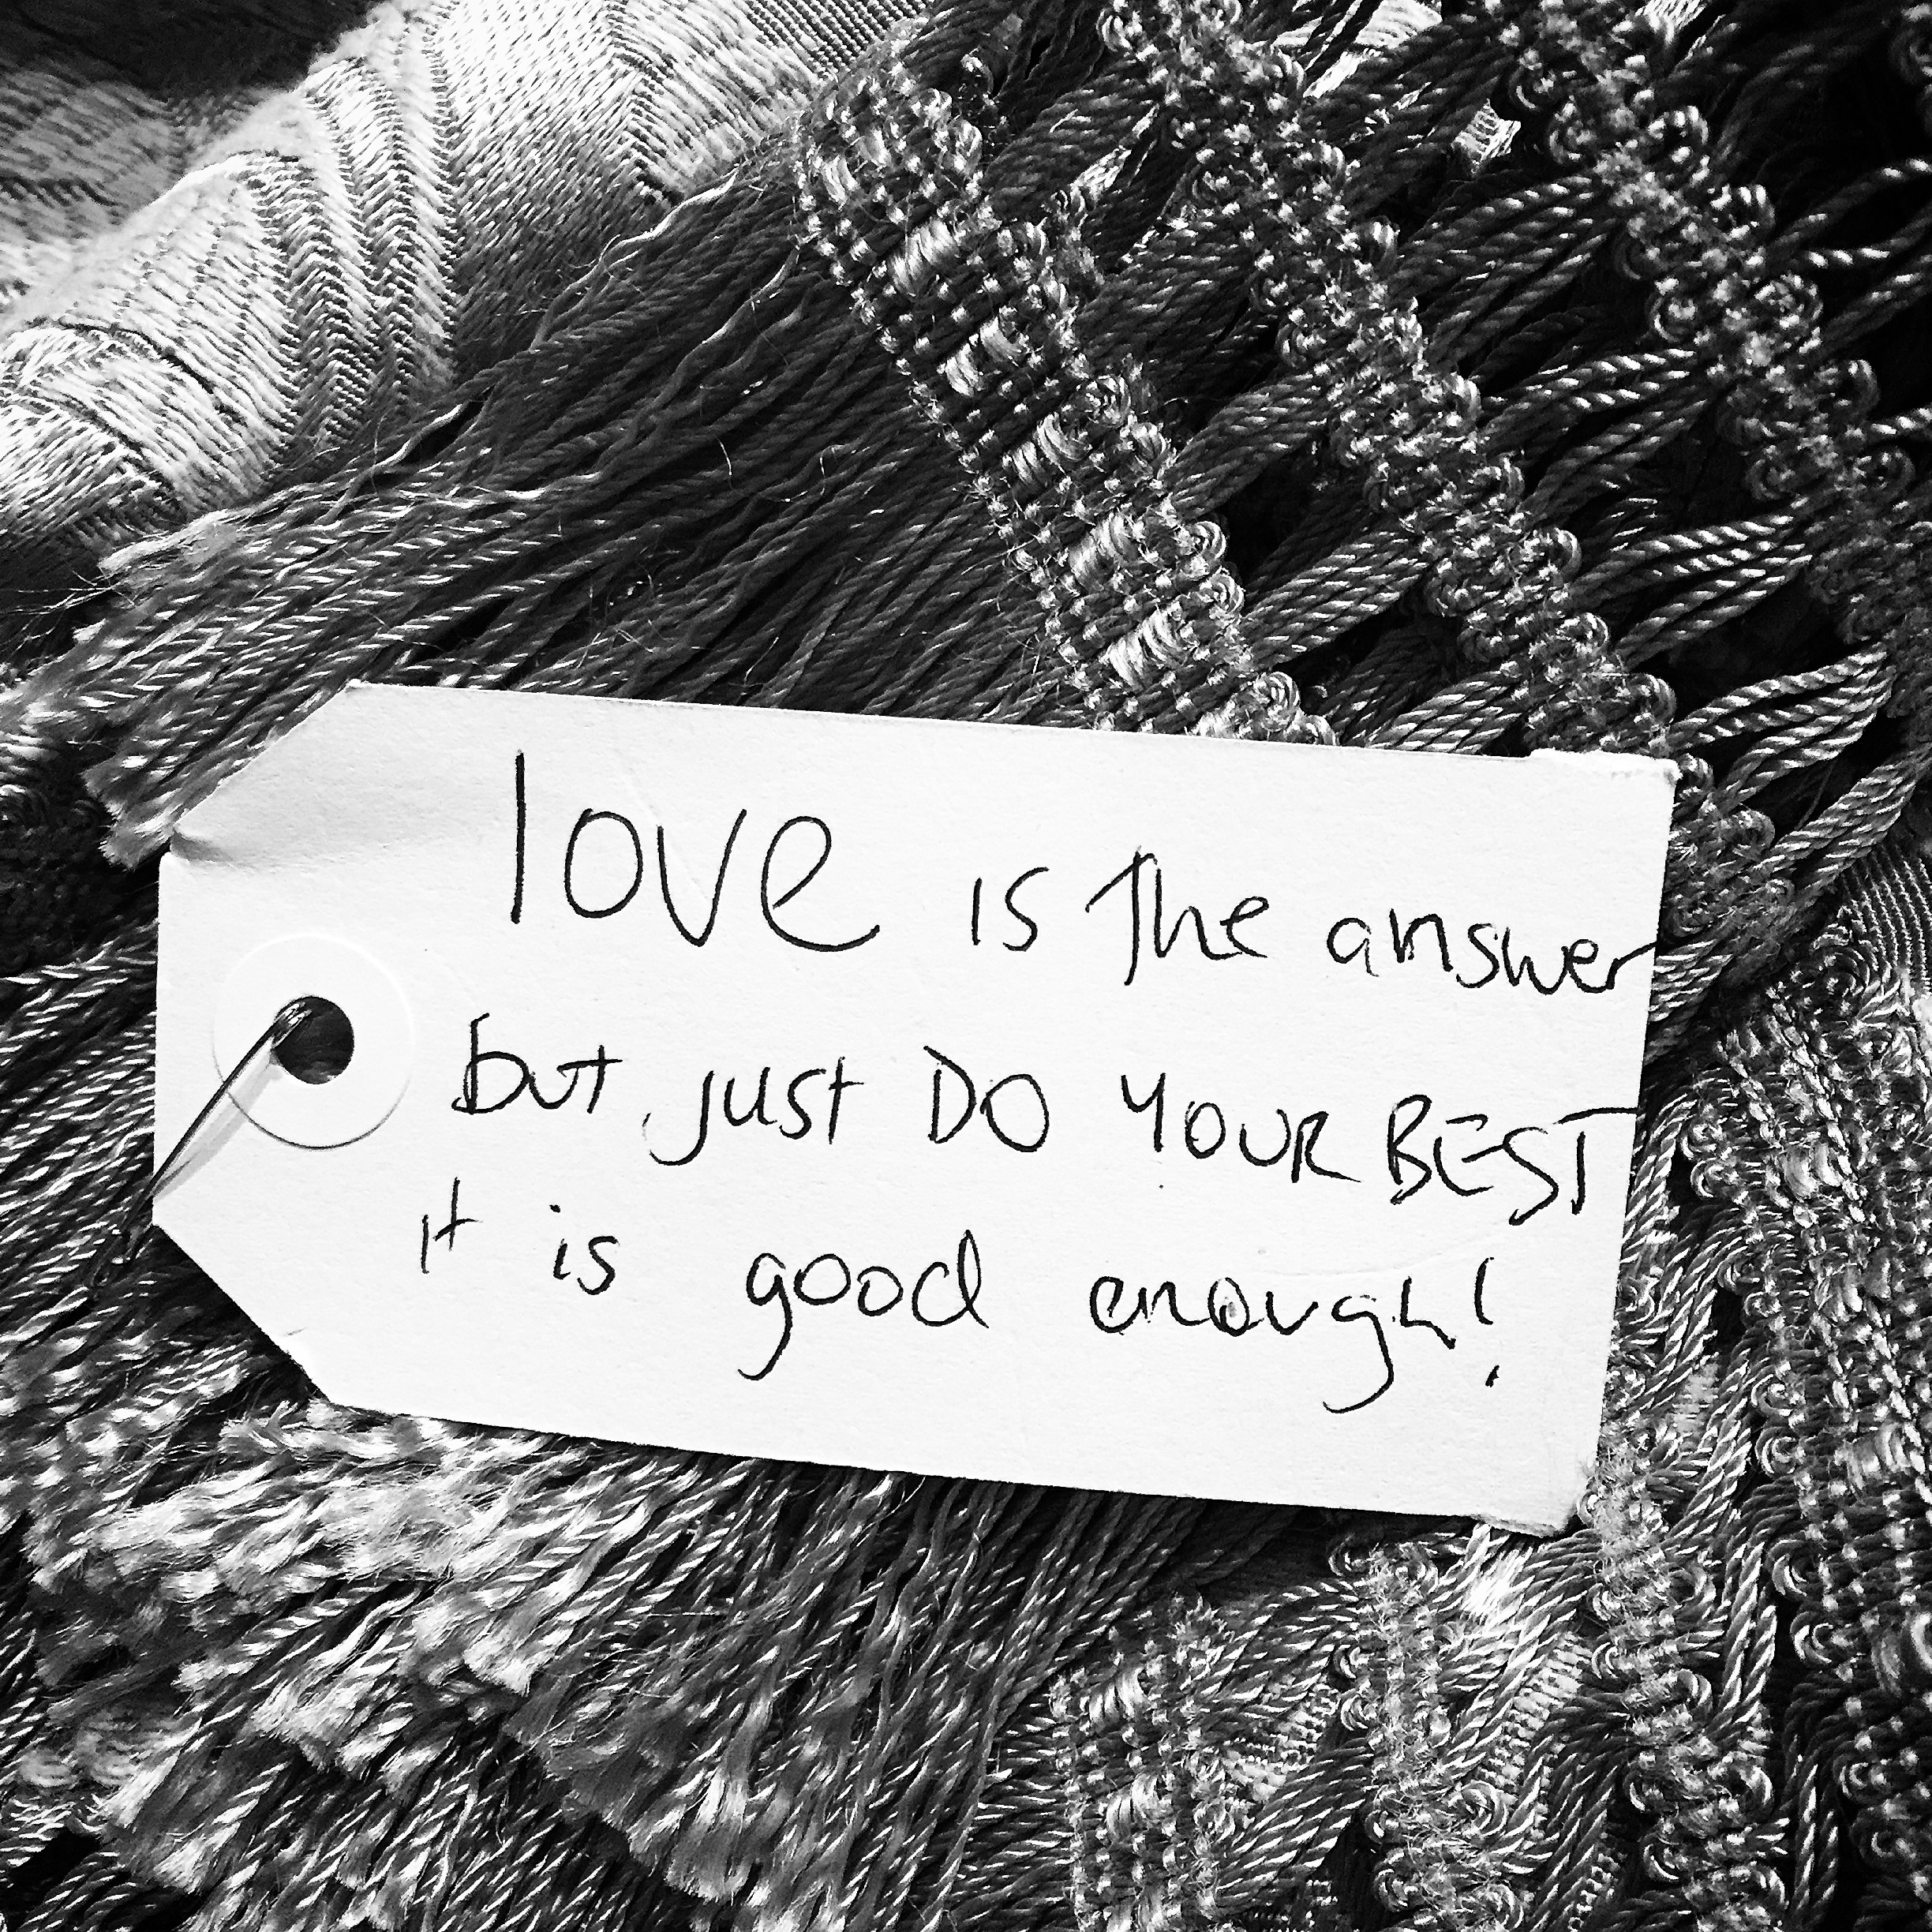 love is the answer
but just DO YOUR BEST
it is good enough!